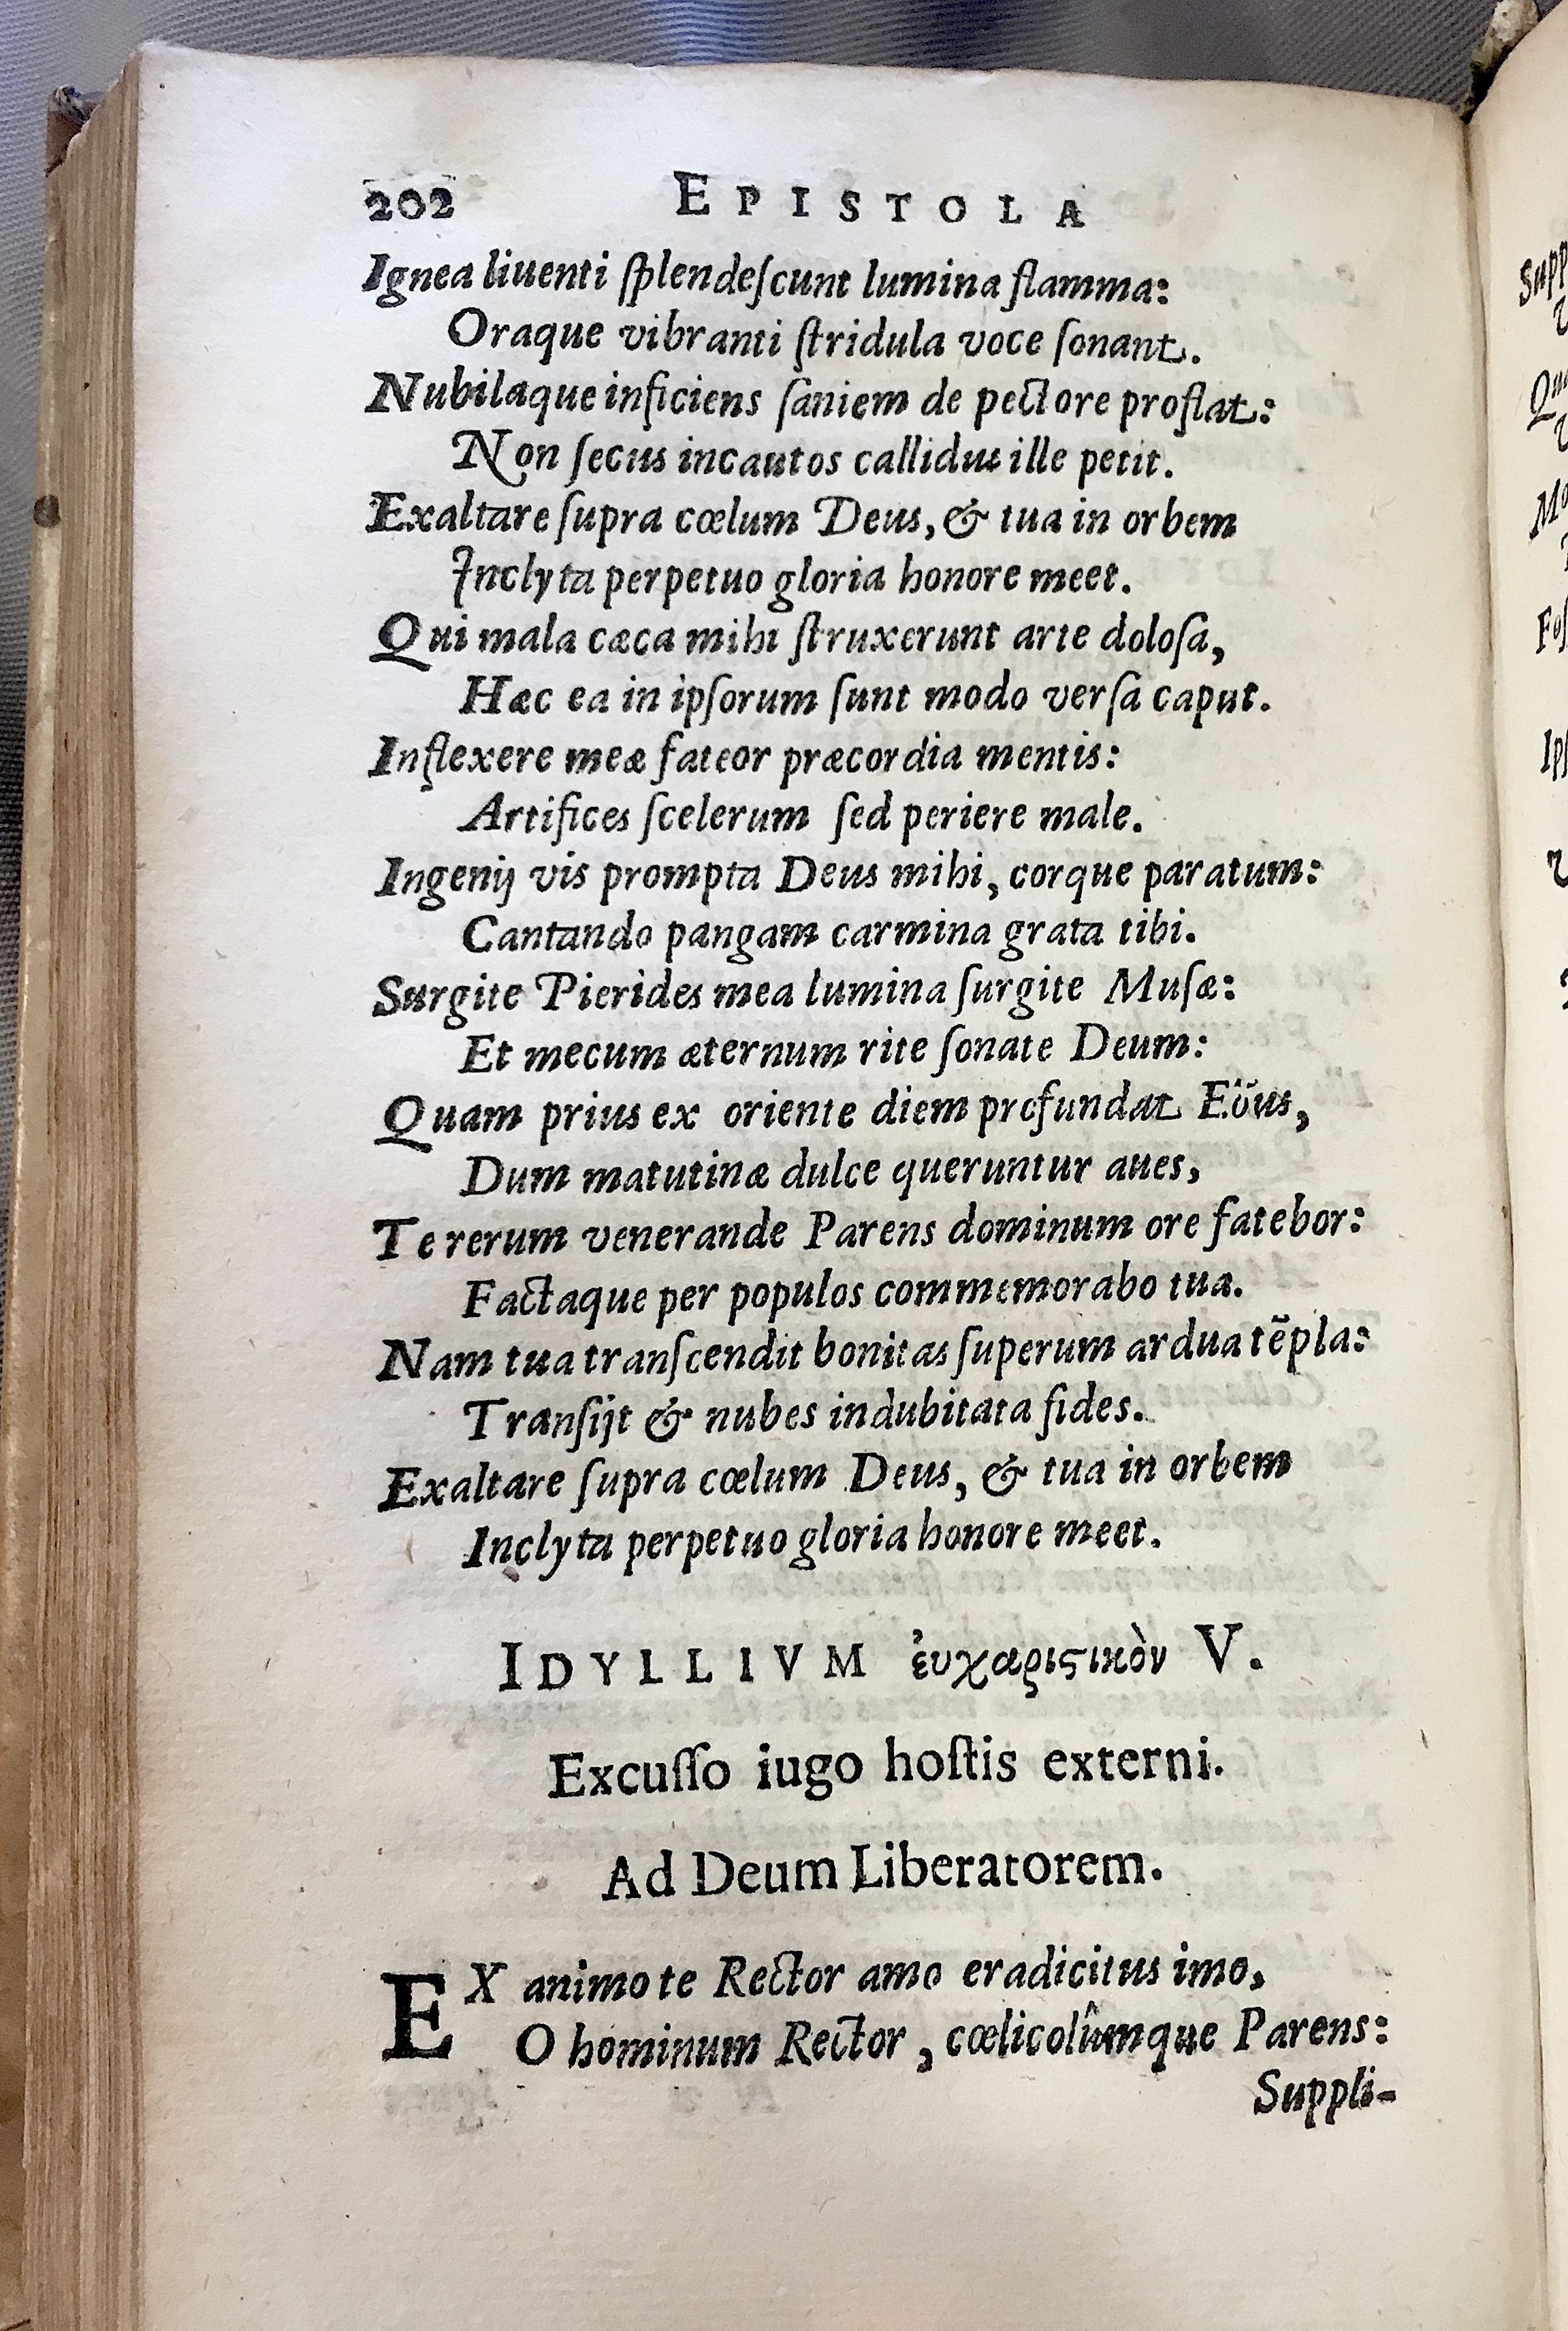 202 EPISTOLA
Ignea liuenti ſplendeſcunt lumina flamma:
Oraque vibranti ſtridula voce ſonant.
Nubilaque inficiens ſaniem de pectore proflat:
Non ſecus incautos callidus ille petit.
Exaltare ſupra cœlum Deus, & tua in orbem
Inclyta perpetuo gloria honore meet.
Qui mala cæca mihi ſtruxerunt arte doloſa,
Hæc ea in ipſorum ſunt modo verſa caput.
Inflexere meæ fateor præcordia mentis:
Artifices ſcelerum ſed periere male.
Ingenij vis prompta Deus mihi, corque paratum:
Cantando pangam carmina grata tibi.
Surgite Pierides mea lumina ſurgite Muſæ:
Et mecum æternum rite ſonate Deum:
Quam prius ex oriente diem profundat Eöus,
Dum matutinæ dulce queruntur aues,
Te rerum venerande Parens dominum ore fatebor:
Factaque per populos commemorabo tua.
Nam tua tranſcendit bonitas ſuperum ardua tẽpla:
Tranſijt & nubes indubitata fides.
Exaltare ſupra cœlum Deus, & tua in orbem
Inclyta perpetuo gloria honore meet.
IDYLLIVM ἐυχαριϛικὸν V.
Excuſſo iugo hoſtis externi.
Ad Deum Liberatorem.
EX animo te Rector amo eradicitus imo,
O hominum Rector, cœlicolûmque Parens:
Suppli-